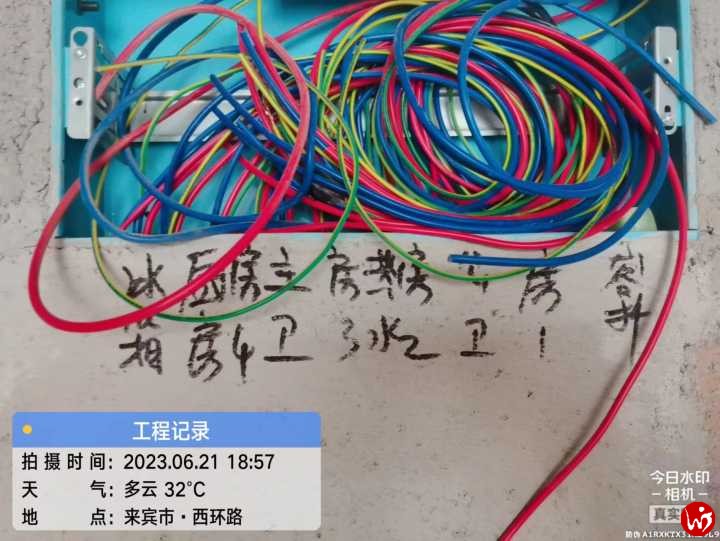 冰 厨 房 主 房 热 房 公 房 客
箱 房 4 卫 3 水 2 卫 1
工程记录
拍摄时间: 2023.06.21 18:57
天 气: 多云 32°C
地 点: 来宾市·西环路
今日水印
-相机-
真实
防伪